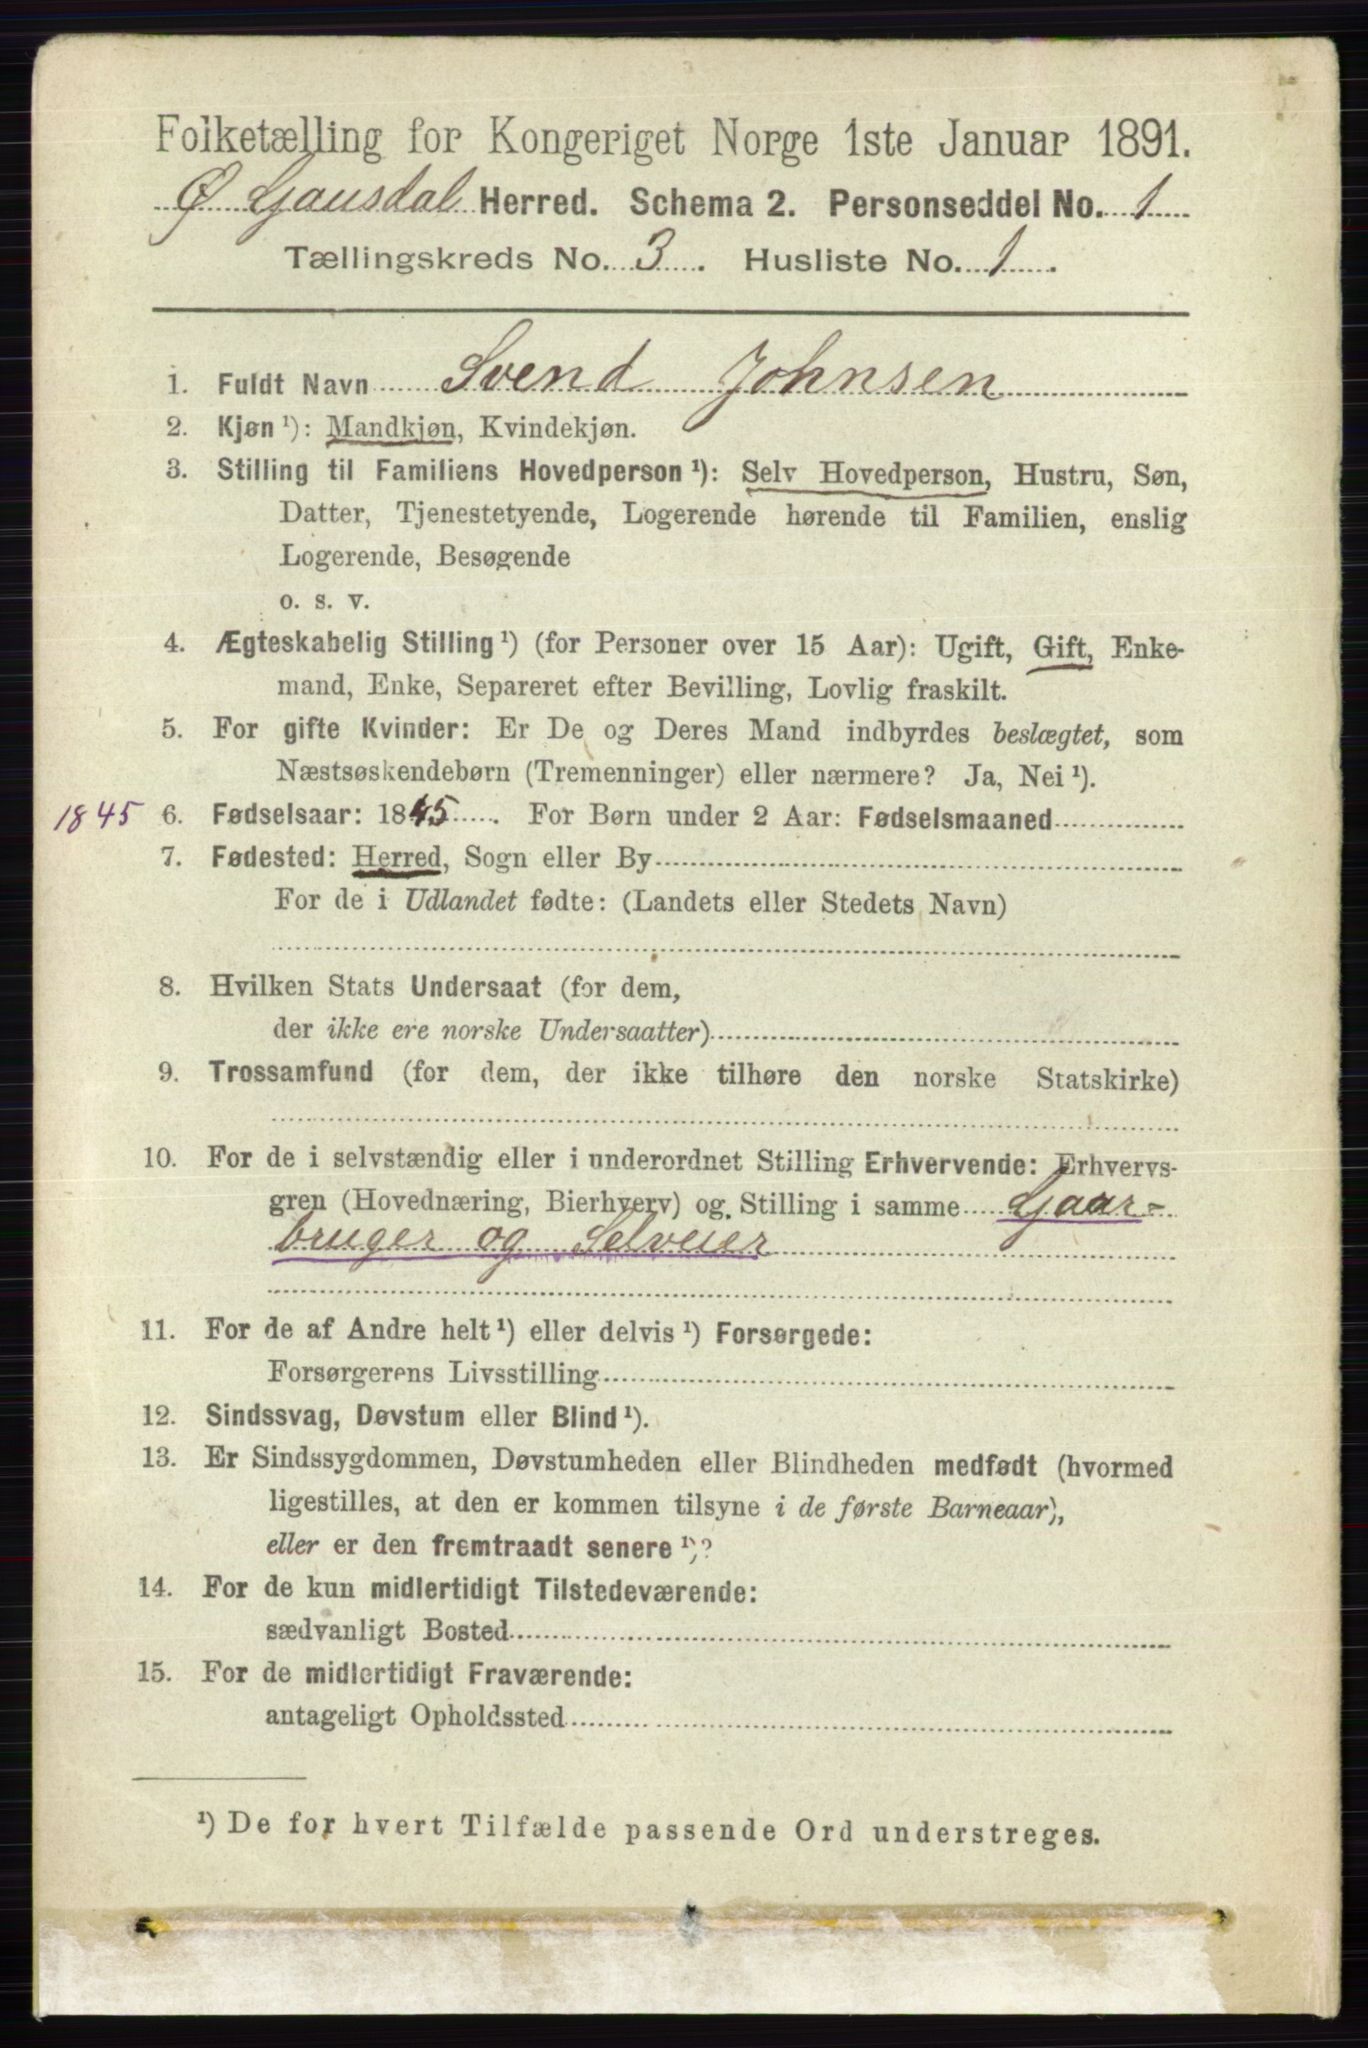 Folketælling for Kongeriget Norge 1ste Januar 1891.
Ø Gausdal Herred. Schema 2. Personseddel No. 1
Tællingskreds No. 3. Husliste No. 1.
1. Fuldt Navn Svend Johnsen
2. Kjøn ¹): Mandkjøn, Kvindekjøn.
3. Stilling til Familiens Hovedperson ¹): Selv Hovedperson, Hustru, Søn,
Datter, Tjenestetyende, Logerende hørende til Familien, enslig
Logerende, Besøgende
o. s. v.
4. Ægteskabelig Stilling ¹) (for Personer over 15 Aar): Ugift, Gift, Enke-
mand, Enke, Separeret efter Bevilling, Lovlig fraskilt.
5. For gifte Kvinder: Er De og Deres Mand indbyrdes beslægtet, som
Næstsøskendebørn (Tremenninger) eller nærmere? Ja, Nei ¹).
1845 6. Fødselsaar: 1845. For Børn under 2 Aar: Fødselsmaaned
7. Fødested: Herred, Sogn eller By
For de i Udlandet fødte: (Landets eller Stedets Navn)
8. Hvilken Stats Undersaat (for dem,
der ikke ere norske Undersaatter)
9. Trossamfund (for dem, der ikke tilhøre den norske Statskirke)
10. For de i selvstændig eller i underordnet Stilling Erhvervende: Erhvervs-
gren (Hovednæring, Bierhverv) og Stilling i samme Gaar-
bruger og Selveier
11. For de af Andre helt ¹) eller delvis ¹) Forsørgede:
Forsørgerens Livsstilling
12. Sindssvag, Døvstum eller Blind ¹).
13. Er Sindssygdommen, Døvstumheden eller Blindheden medfødt (hvormed
ligestilles, at den er kommen tilsyne i de første Barneaar),
eller er den fremtraadt senere ¹)?
14. For de kun midlertidigt Tilstedeværende:
sædvanligt Bosted
15. For de midlertidigt Fraværende:
antageligt Opholdssted
¹) De for hvert Tilfælde passende Ord understreges.